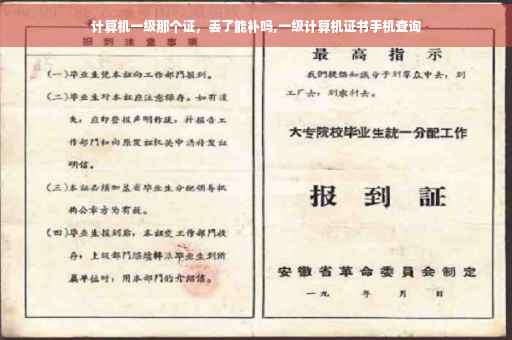 计算机一级那个证，丢了能补吗,一级计算机证书手机查询
报到注意事项
(一)毕业生凭本证向工作部门报到。
(二)毕业生对本证应注意保存。如有遗
失，应即登报声明作废，并报告工
作部门和向原发证机关申请补发证
明信。
(三)本证必须加盖省毕业生分配领导机
构公章方为有效。
(四)毕业生报到后，本证交工作部门收
存；上级部门
毕业生到所
属单位时，用本部门的介绍信。
最高指示
我们提倡知识分子到群众中去，到
工厂去，到农村去。
大专院校毕业生統一分配工作
报到証
安徽省革命委員会制定
一九 年 月 日